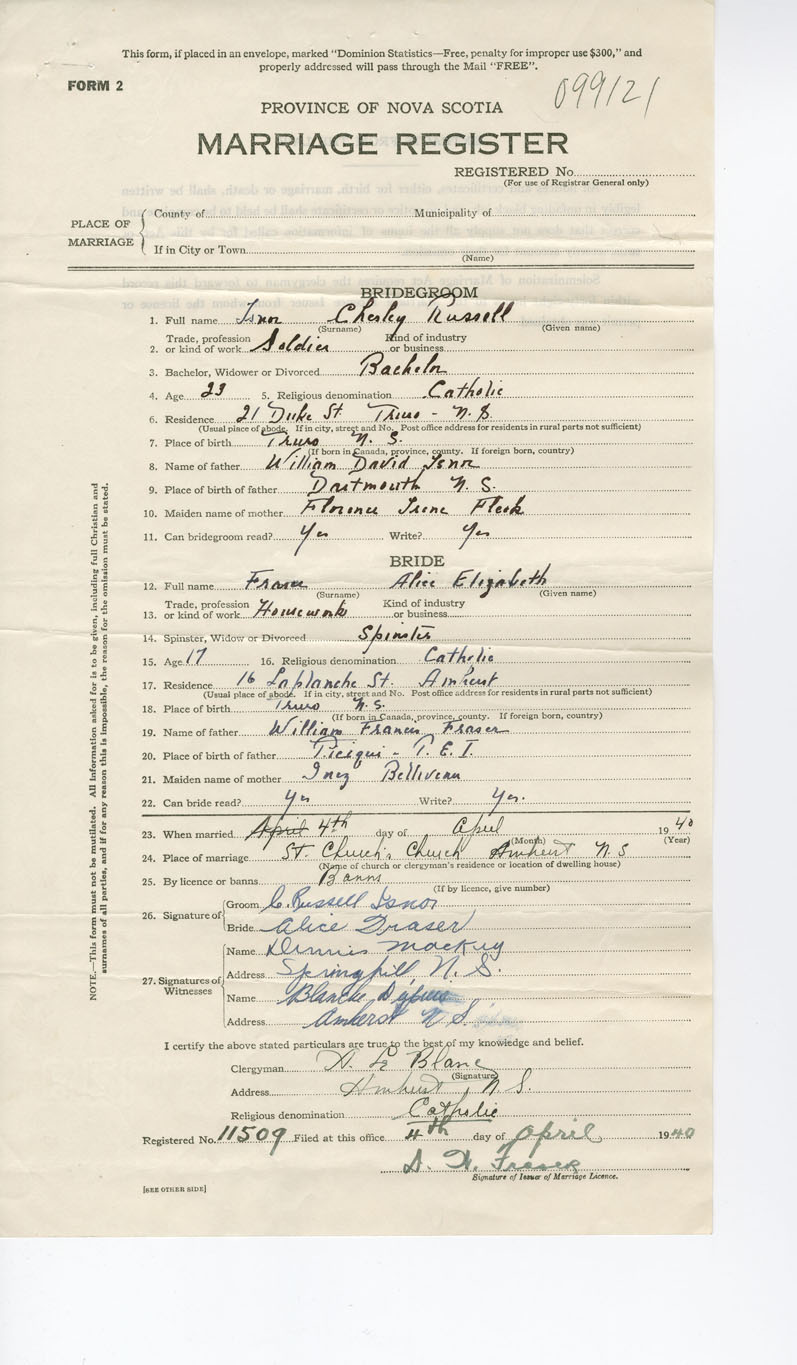 This form, if placed in an envelope, marked "Dominion Statistics—Free, penalty for improper use $300," and
properly addressed will pass through the Mail "FREE".
FORM 2
099121
PROVINCE OF NOVA SCOTIA
MARRIAGE REGISTER
REGISTERED No.
(For use of Registrar General only)
PLACE OF MARRIAGE
County of Municipality of
If in City or Town
(Name)
BRIDEGROOM
1. Full name Isnor Chesley Russell
(Surname) (Given name)
2. Trade, profession or kind of work Soldier Kind of industry or business
3. Bachelor, Widower or Divorced Bachelor
4. Age 23 5. Religious denomination Catholic
6. Residence 21 Duke St. Truro - N.S.
(Usual place of abode. If in city, street and No. Post office address for residents in rural parts not sufficient)
7. Place of birth Truro N. S.
(If born in Canada, province, county. If foreign born, country)
8. Name of father William David Isnor
9. Place of birth of father Dartmouth N. S.
10. Maiden name of mother Florence Irene Fleck
11. Can bridegroom read? Yes Write? Yes
BRIDE
12. Full name Fraser Alice Elizabeth
(Surname) (Given name)
13. Trade, profession or kind of work Homework Kind of industry or business
14. Spinster, Widow or Divorced Spinster
15. Age 17 16. Religious denomination Catholic
17. Residence 16 Laplanche St. Amherst
(Usual place of abode. If in city, street and No. Post office address for residents in rural parts not sufficient)
18. Place of birth Truro N.S.
(If born in Canada, province, county. If foreign born, country)
19. Name of father William Francis Fraser
20. Place of birth of father - P. E. I.
21. Maiden name of mother Inez Belliveau
22. Can bride read? Yes Write? Yes.
23. When married April 4th day of April 1940
(Month) (Year)
24. Place of marriage St. Church Amherst N S
(Name of church or clergyman's residence or location of dwelling house)
25. By licence or banns Banns
(If by licence, give number)
26. Signature of
Groom C. Russell Isnor
Bride Alice Fraser
27. Signatures of Witnesses
Name Dennis Mackey
Address Springhill N. S.
Name Blanche
Address Amherst N S.
I certify the above stated particulars are true to the best of my knowledge and belief.
Clergyman A. Le Blanc
(Signature)
Address Amherst, N S.
Religious denomination Catholic
Registered No. 11509 Filed at this office 4th day of April 1940
Fraser
Signature of Issuer of Marriage Licence.
[SEE OTHER SIDE]
NOTE.—This form must not be mutilated. All information asked for is to be given, including full Christian and
surnames of all parties, and if for any reason this is impossible, the reason for the omission must be stated.